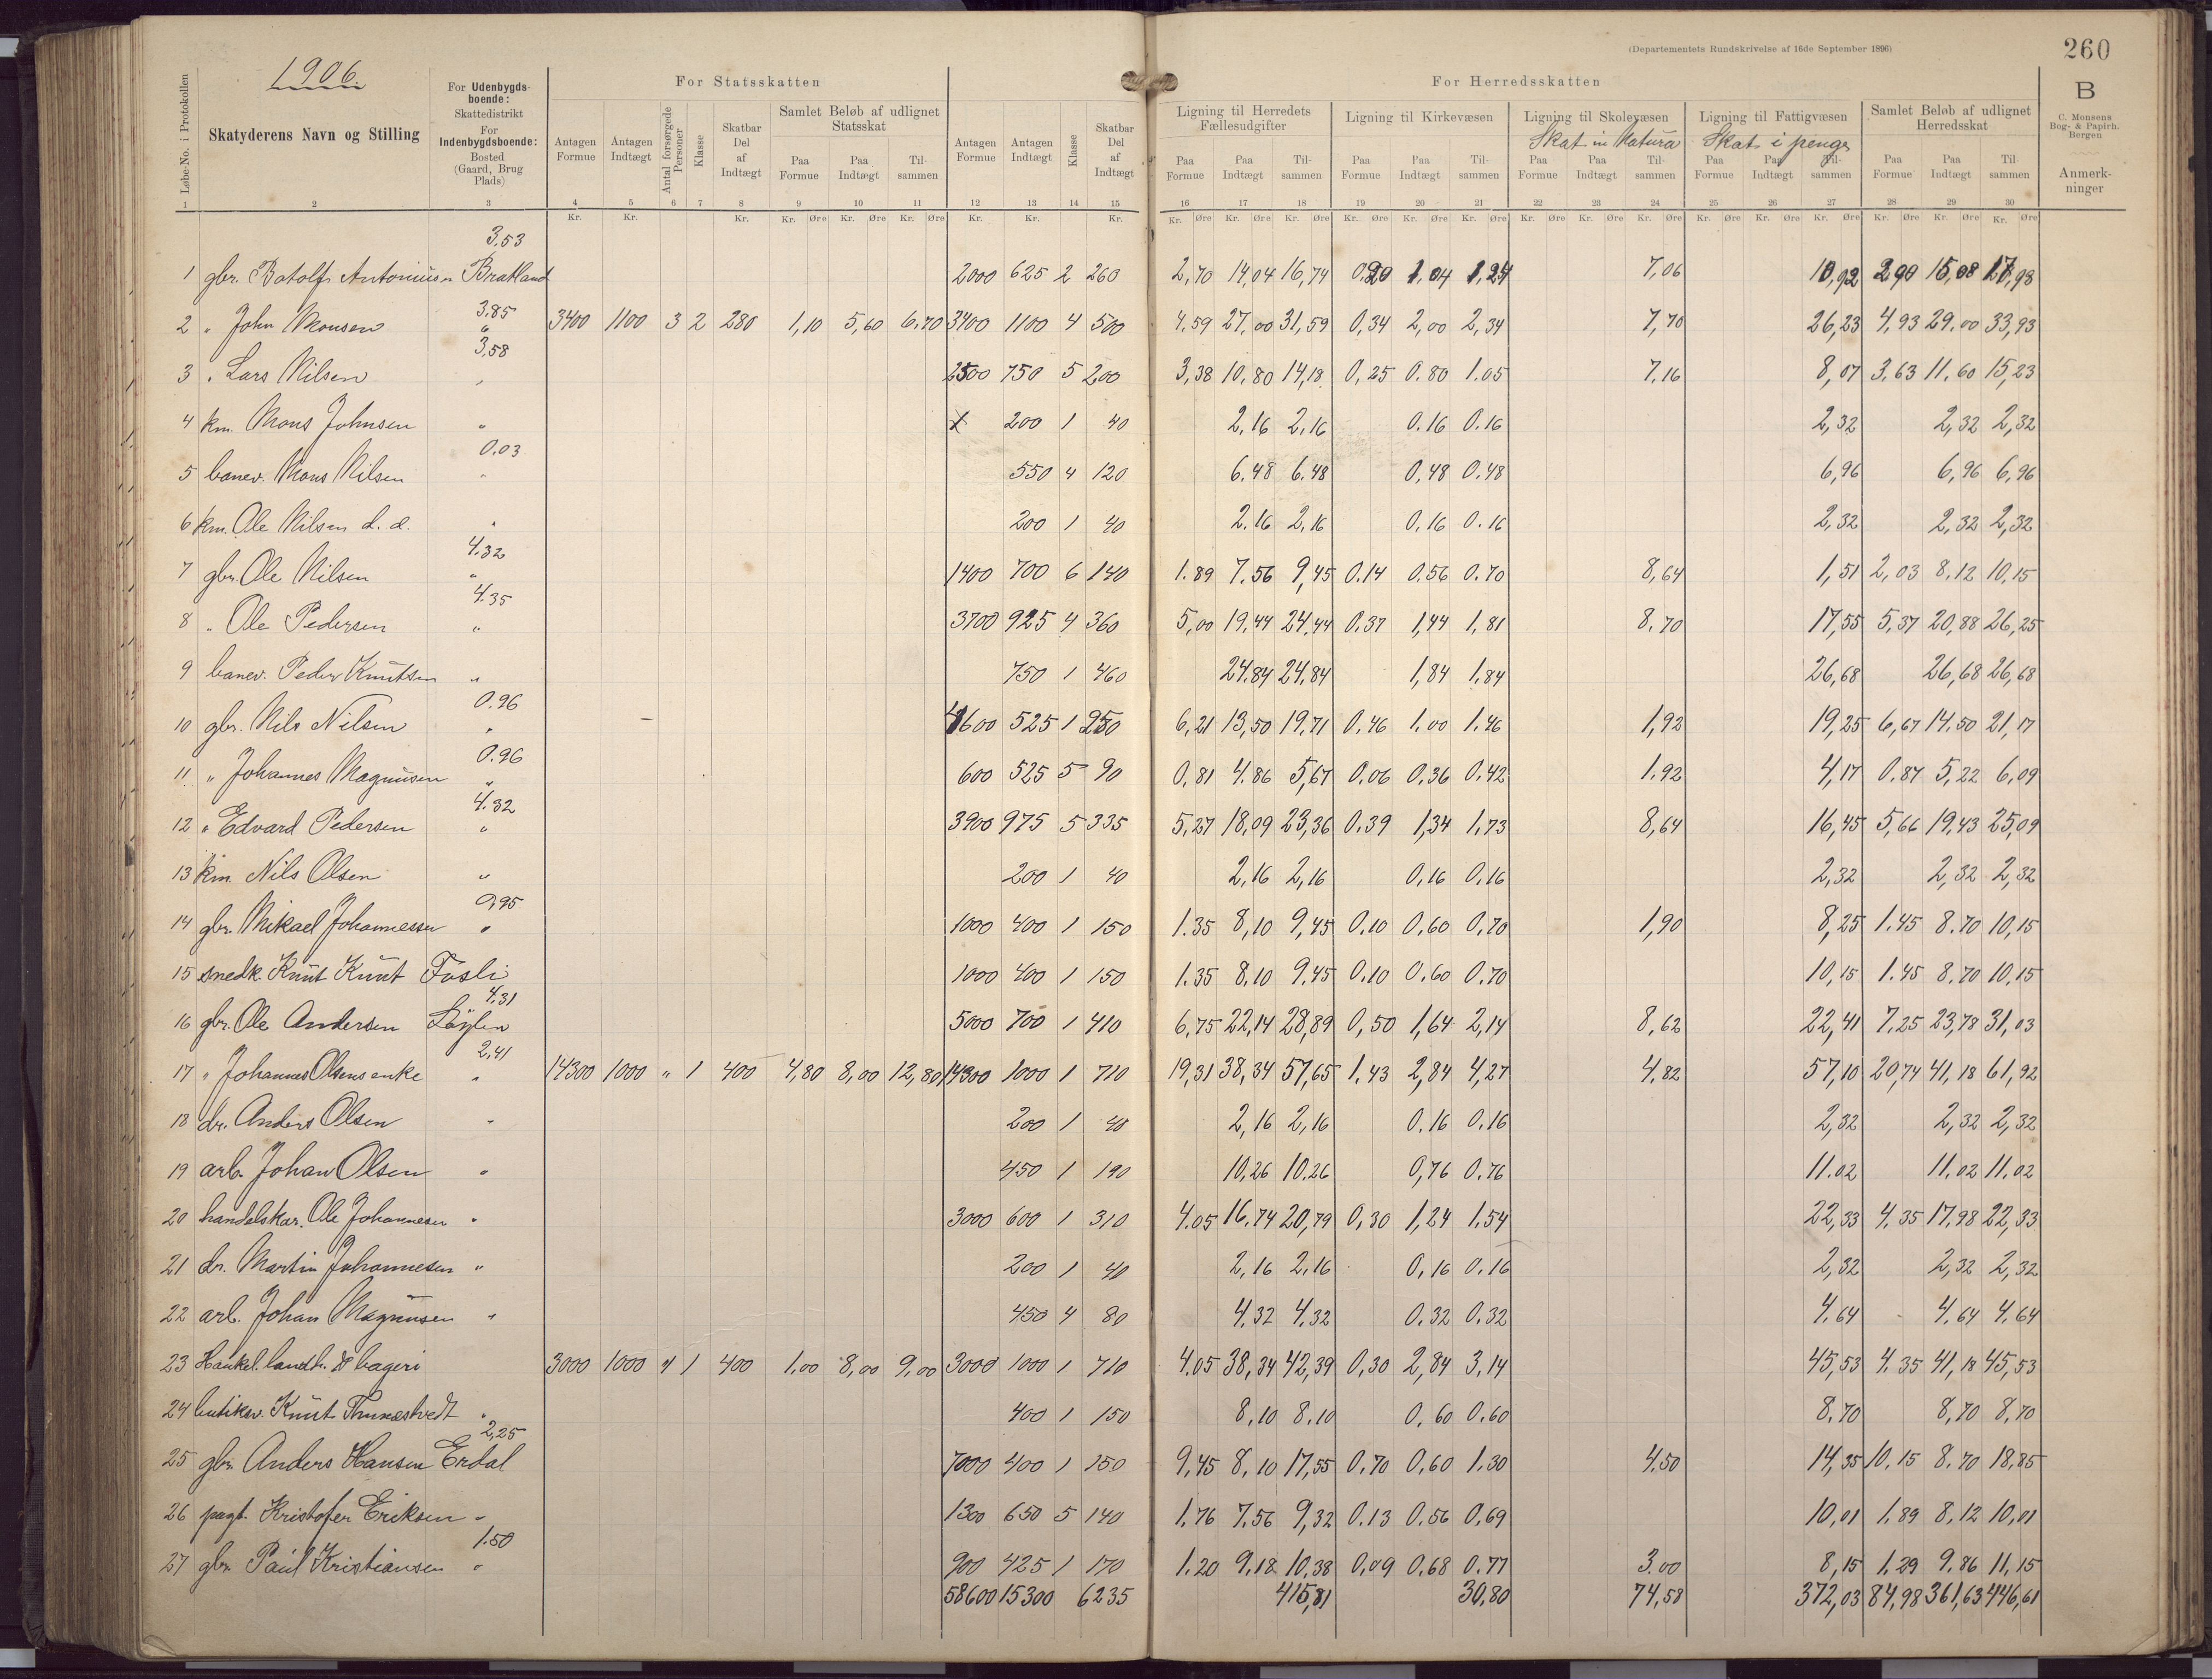 (Departementets Rundskrivelse af 16de September 1896)
260
1906.
Løbe-No. i Protokollen
Skatyderens Navn og Stilling
For Udenbygdsboende:
Skattedistrikt
For Indenbygdsboende:
Bosted
(Gaard, Brug
Plads)
For Statsskatten
Antagen Formue
Antagen Indtægt
Antal forsørgede Personer
Klasse
Skatbar Del af Indtægt
Samlet Beløb af udlignet Statsskat
Paa Formue
Paa Indtægt
Tilsammen
For Herredsskatten
Antagen Formue
Antagen Indtægt
Klasse
Skatbar Del af Indtægt
Ligning til Herredets Fællesudgifter
Paa Formue
Paa Indtægt
Tilsammen
Ligning til Kirkevæsen
Paa Formue
Paa Indtægt
Tilsammen
Ligning til Skolevæsen
Skat in Natura
Paa Formue
Paa Indtægt
Tilsammen
Ligning til Fattigvæsen
Skat i penge
Paa Formue
Paa Indtægt
Tilsammen
Samlet Beløb af udlignet Herredsskat
Paa Formue
Paa Indtægt
Tilsammen
B
C. Monsens
Bog- & Papirh.
Bergen
Anmerkninger
1 2 3 4 5 6 7 8 9 10 11 12 13 14 15 16 17 18 19 20 21 22 23 24 25 26 27 28 29 30
3,53
1 gbr. Botolf Antoniusen Bratland 2000 625 2 260 2,70 14,04 16,74 0,20 1,04 1,24 7,06 10,92 2,90 15,08 17,98
3.85
2 " John Monsen " 3400 1100 3 2 280 1,10 5,60 6,70 3400 1100 4 500 4,59 27,00 31,59 0,34 2,00 2,34 7,70 26,23 4,93 29,00 33,93
3,58
3 " Lars Nilsen " 2500 750 5 200 3,38 10,80 14,18 0,25 0.80 1.05 7,16 8,07 3,63 11,60 15,23
4 km. Mons Johnsen " 200 1 40 2,16 2,16 0.16 0.16 2,32 2,32 2,32
0.03
5 banev. Mons Nilsen " 550 4 120 6,48 6.48 0,48 0.48 6,96 6,96 6,96
6 km. Ole Nilsen d. æ. " 200 1 40 2.16 2,16 0.16 0.16 2,32 2,32 2,32
4.32
7 gbr. Ole Nilsen " 1400 700 6 140 1.89 7.56 9,45 0.14 0.56 0.70 8,64 1,51 2,03 8,12 10,15
4.35
8 " Ole Pedersen " 3700 925 4 360 5,00 19,44 24,44 0.37 1,44 1,81 8.70 17,55 5,37 20,88 26,25
9 banev. Peder Knutsen " 750 1 460 24.84 24,84 1,84 1.84 26,68 26,68 26,68
0.96
10 gbr. Nils Nilsen " 4600 525 1 250 6,21 13,50 19,71 0.46 1.00 1.46 1,92 19,25 6,67 14,50 21,17
0.96
11 " Johannes Magnusen " 600 525 5 90 0,81 4.86 5,67 0.06 0.36 0.42 1.92 4,17 0.87 5,22 6,09
4.32
12 " Edvard Pedersen " 3900 975 5 335 5,27 18,09 23,36 0.39 1,34 1,73 8,64 16,45 5,66 19,43 25,09
13 km. Nils Olsen " 200 1 40 2,16 2,16 0,16 0,16 2,32 2,32 2,32
0,95
14 gbr. Mikael Johannessen " 1000 400 1 150 1.35 8,10 9,45 0,10 0,60 0,70 1,90 8,25 1.45 8.70 10,15
15 snedk. Knut Knut Fosli 1000 400 1 150 1.35 8,10 9.45 0.10 0.60 0.70 10,15 1.45 8,70 10,15
4,31
16 gbr. Ole Andersen 5000 700 1 410 6,75 22,14 28,89 0,50 1,64 2,14 8,62 22,41 7,25 23,78 31,03
2,41
17 " Johannes Olsens enke " 14300 1000 " 1 400 4,80 8,00 12,80 14300 1000 1 710 19,31 38,34 57,65 1,43 2,84 4,27 4,82 57,10 20,74 41,18 61,92
18 dr. Anders Olsen " 200 1 40 2,16 2,16 0.16 0.16 2,32 2,32 2,32
19 arb. Johan Olsen " 450 1 190 10,26 10.26 0,76 0.76 11.02 11,02 11.02
20 handelskar. Ole Johannesen " 3000 600 1 310 4.05 16,74 20,79 0,30 1,24 1,54 22,33 4,35 17,98 22,33
21 dr. Martin Johannesen " 200 1 40 2,16 2,16 0,16 0.16 2,32 2,32 2,32
22 arb. Johan Magnusen " 450 4 80 4,32 4,32 0.32 0.32 4,64 4,64 4,64
23 Haukel. landh. & bageri 3000 1000 " 1 400 1.00 8,00 9,00 3000 1000 1 710 4.05 38,34 42,39 0,30 2,84 3,14 45,53 4,35 41,18 45,53
24 butiksv. Knut Thunestvedt " 400 1 150 8,10 8.10 0,60 0.60 8.70 8,70 8,70
2,25
25 gbr. Anders Hansen Erdal 7000 400 1 150 9,45 8,10 17,55 0.70 0.60 1.30 4.50 14,35 10,15 8.70 18,85
26 pagt. Kristofer Eriksen " 1300 650 5 140 1,76 7,56 9,32 0.13 0.56 0,69 10,01 1,89 8,12 10,01
1.50
27 gbr. Paul Kristiansen " 900 425 1 170 1.20 9,18 10,38 0,09 0,68 0.77 3.00 8,15 1,29 9,86 11,15
58600 15300 6235 415,81 30,80 74,58 372,03 84,98 361,63 446,61